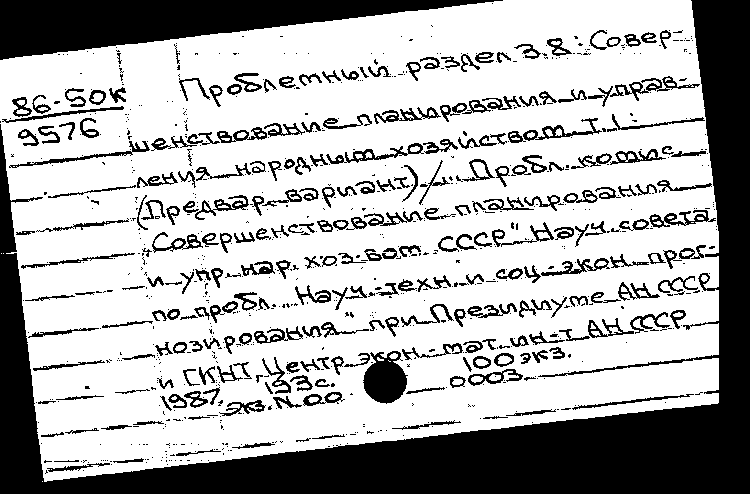 86-50к
9576
Проблемный раздел 3.8: Совер-
шенствование планирования и управ-
ления народным хозяйством Т.1:
(Предвар. вариант) / ... Пробл. комис.
"Совершенствование планирования
и упр. нар. хоз-вом СССР" Науч. совета
по пробл. "Науч.-техн. и соц.-экон. прог-
нозирования" при Президиуме АН СССР
и ГКНТ, Центр. экон.-мат. ин-т АН СССР.
1987. 193 с. 100 экз.
экз. N 00 0003.